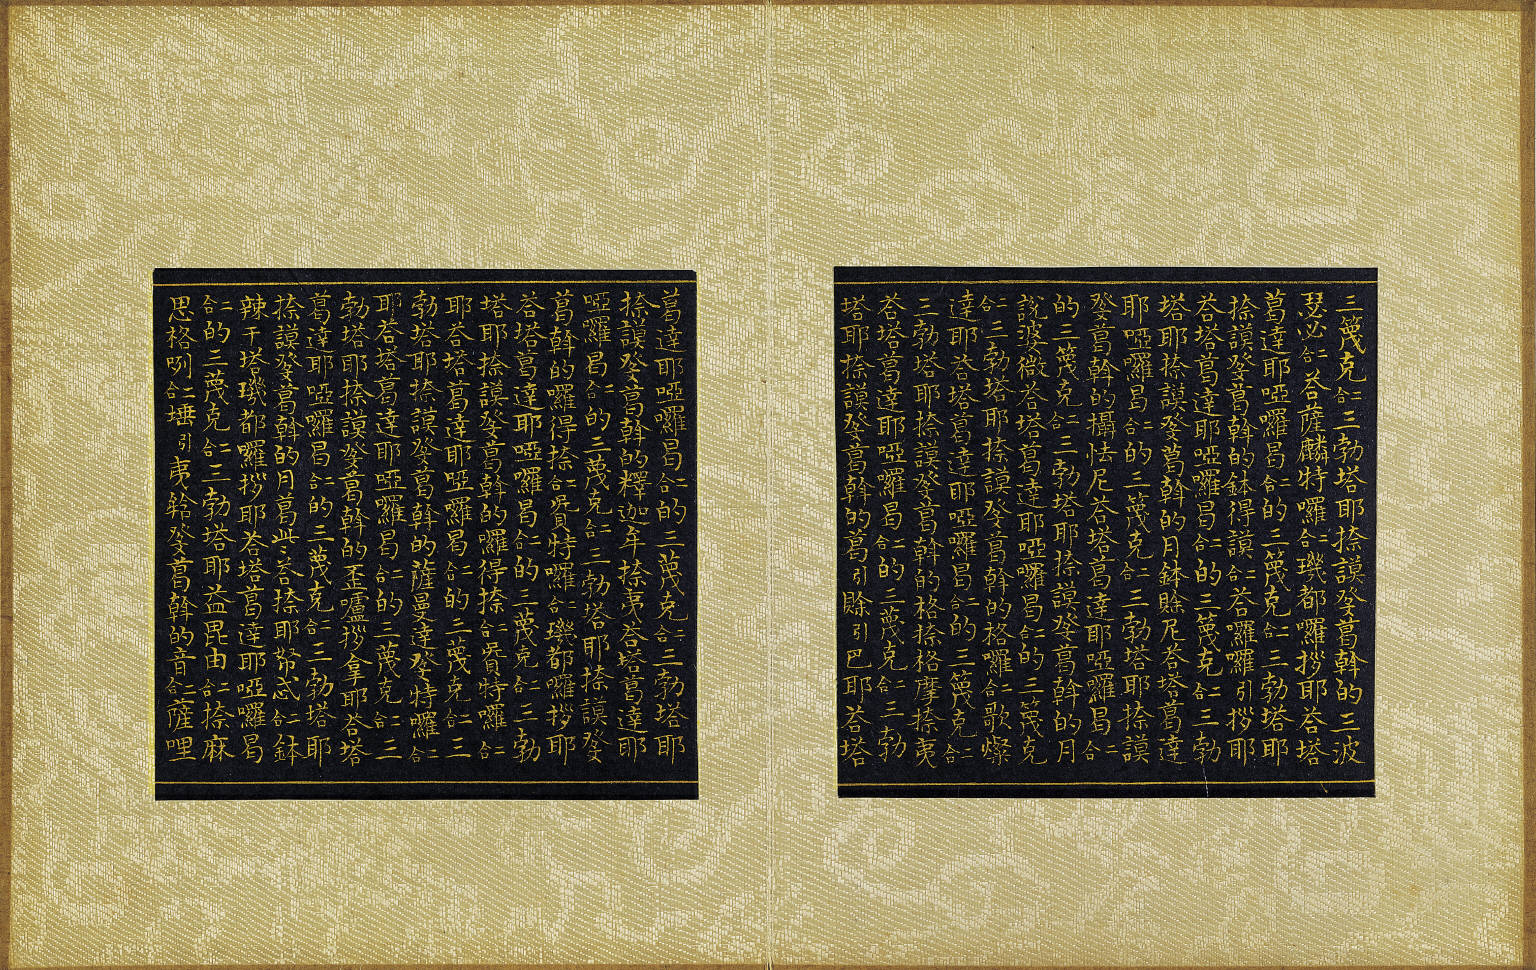 三篾克二合三勃塔耶捺謨癹葛斡的三波
瑟必二合荅薩麟特囉二合璣都囉拶耶荅塔
葛達耶啞囉曷二合的三篾克二合三勃塔耶
捺謨癹葛斡的鉢得謨二合荅囉囉引拶耶
荅塔葛達耶啞囉曷二合的三篾克二合三勃
塔耶捺謨癹葛斡的月鉢賒尼荅塔葛達
耶啞囉曷二合的三篾克二合三勃塔耶捺謨
癹葛斡的攝怯尼荅塔葛達耶啞囉曷二合
的三篾克二合三勃塔耶捺謨癹葛斡的月
說波微荅塔葛達耶啞囉曷二合的三篾克
二合三勃塔耶捺謨癹葛斡的格囉二合歌燦
達耶荅塔葛達耶啞囉曷二合的三篾克二合
三勃塔耶捺謨癹葛斡的格捺格摩捺夷
荅塔葛達耶啞囉曷二合的三篾克二合三勃
塔耶捺謨癹葛斡的葛引賒引巴耶荅塔
葛達耶啞囉曷二合的三篾克二合三勃塔耶
捺謨癹葛斡的釋迦牟捺夷荅塔葛達耶
啞囉曷二合的三篾克二合三勃塔耶捺謨癹
葛斡的囉得捺二合贊特囉二合璣都囉拶耶
荅塔葛達耶啞囉曷二合的三篾克二合三勃
塔耶捺謨癹葛斡的囉得捺二合贊特囉二合
耶荅塔葛達耶啞囉曷二合的三篾克二合三
勃塔耶捺謨癹葛斡的薩曼達癹特囉二合
耶荅塔葛達耶啞囉曷二合的三篾克二合三
勃塔耶捺謨癹葛斡的丕嚧拶拿耶荅塔
葛達耶啞囉曷二合的三篾克二合三勃塔耶
捺謨癹葛斡的月葛此々荅捺耶帑忒二合鉢
辣干塔璣都囉拶耶荅塔葛達耶啞囉曷
二合的三篾克二合三勃塔耶益毘由二合捺麻
思格咧二合埵引夷齡癹葛斡的音二合薩哩